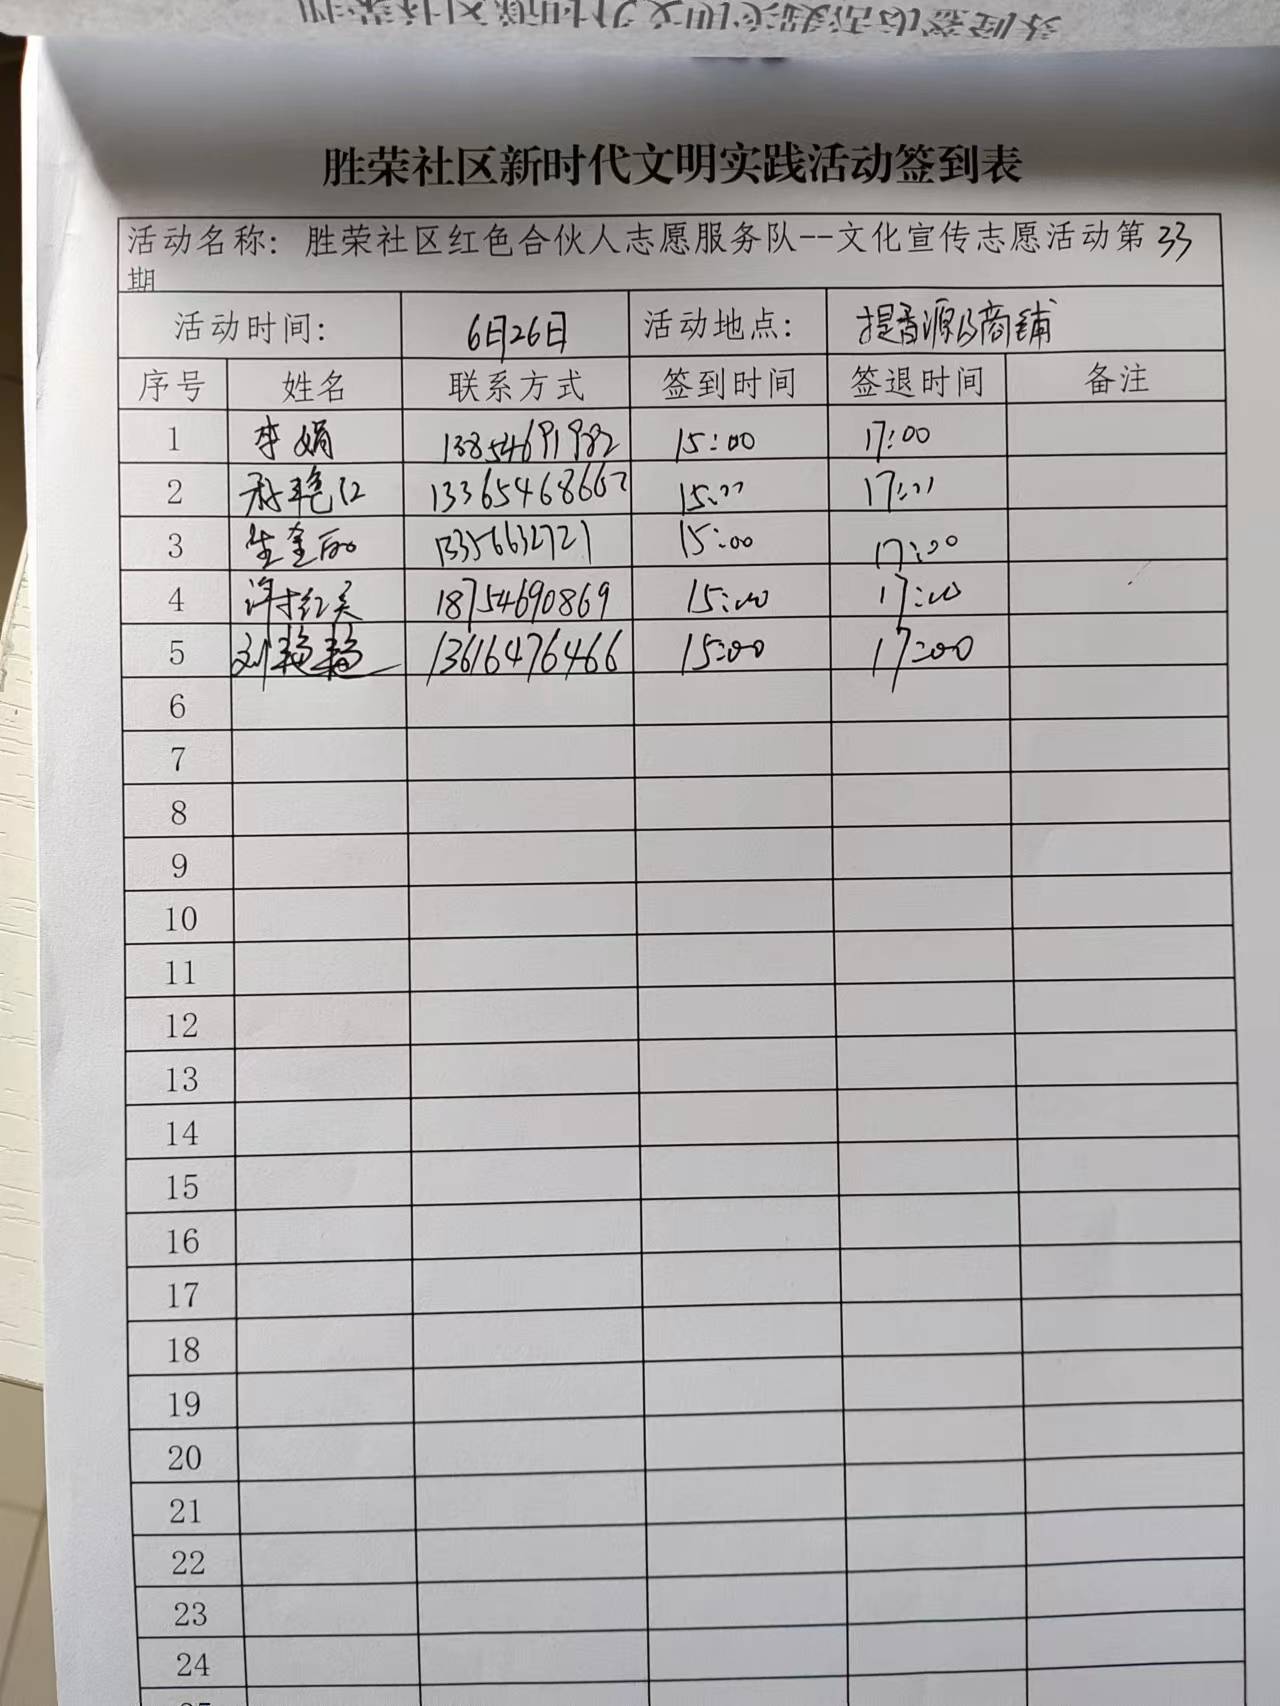 胜荣社区新时代文明实践活动签到表
活动名称：胜荣社区红色合伙人志愿服务队--文化宣传志愿活动第33
期
活动时间： 6月26日 活动地点： 提香源及商铺
序号 姓名 联系方式 签到时间 签退时间 备注
1 李娟 13854691982 15:00 17:00
2 艳红 1336546866 15:00 17:00
3 13356632721 15:00 17:00
4 红 18754690869 15:00 17:00
5 刘艳艳 13616476466 15:00 17:00
6
7
8
9
10
11
12
13
14
15
16
17
18
19
20
21
22
23
24